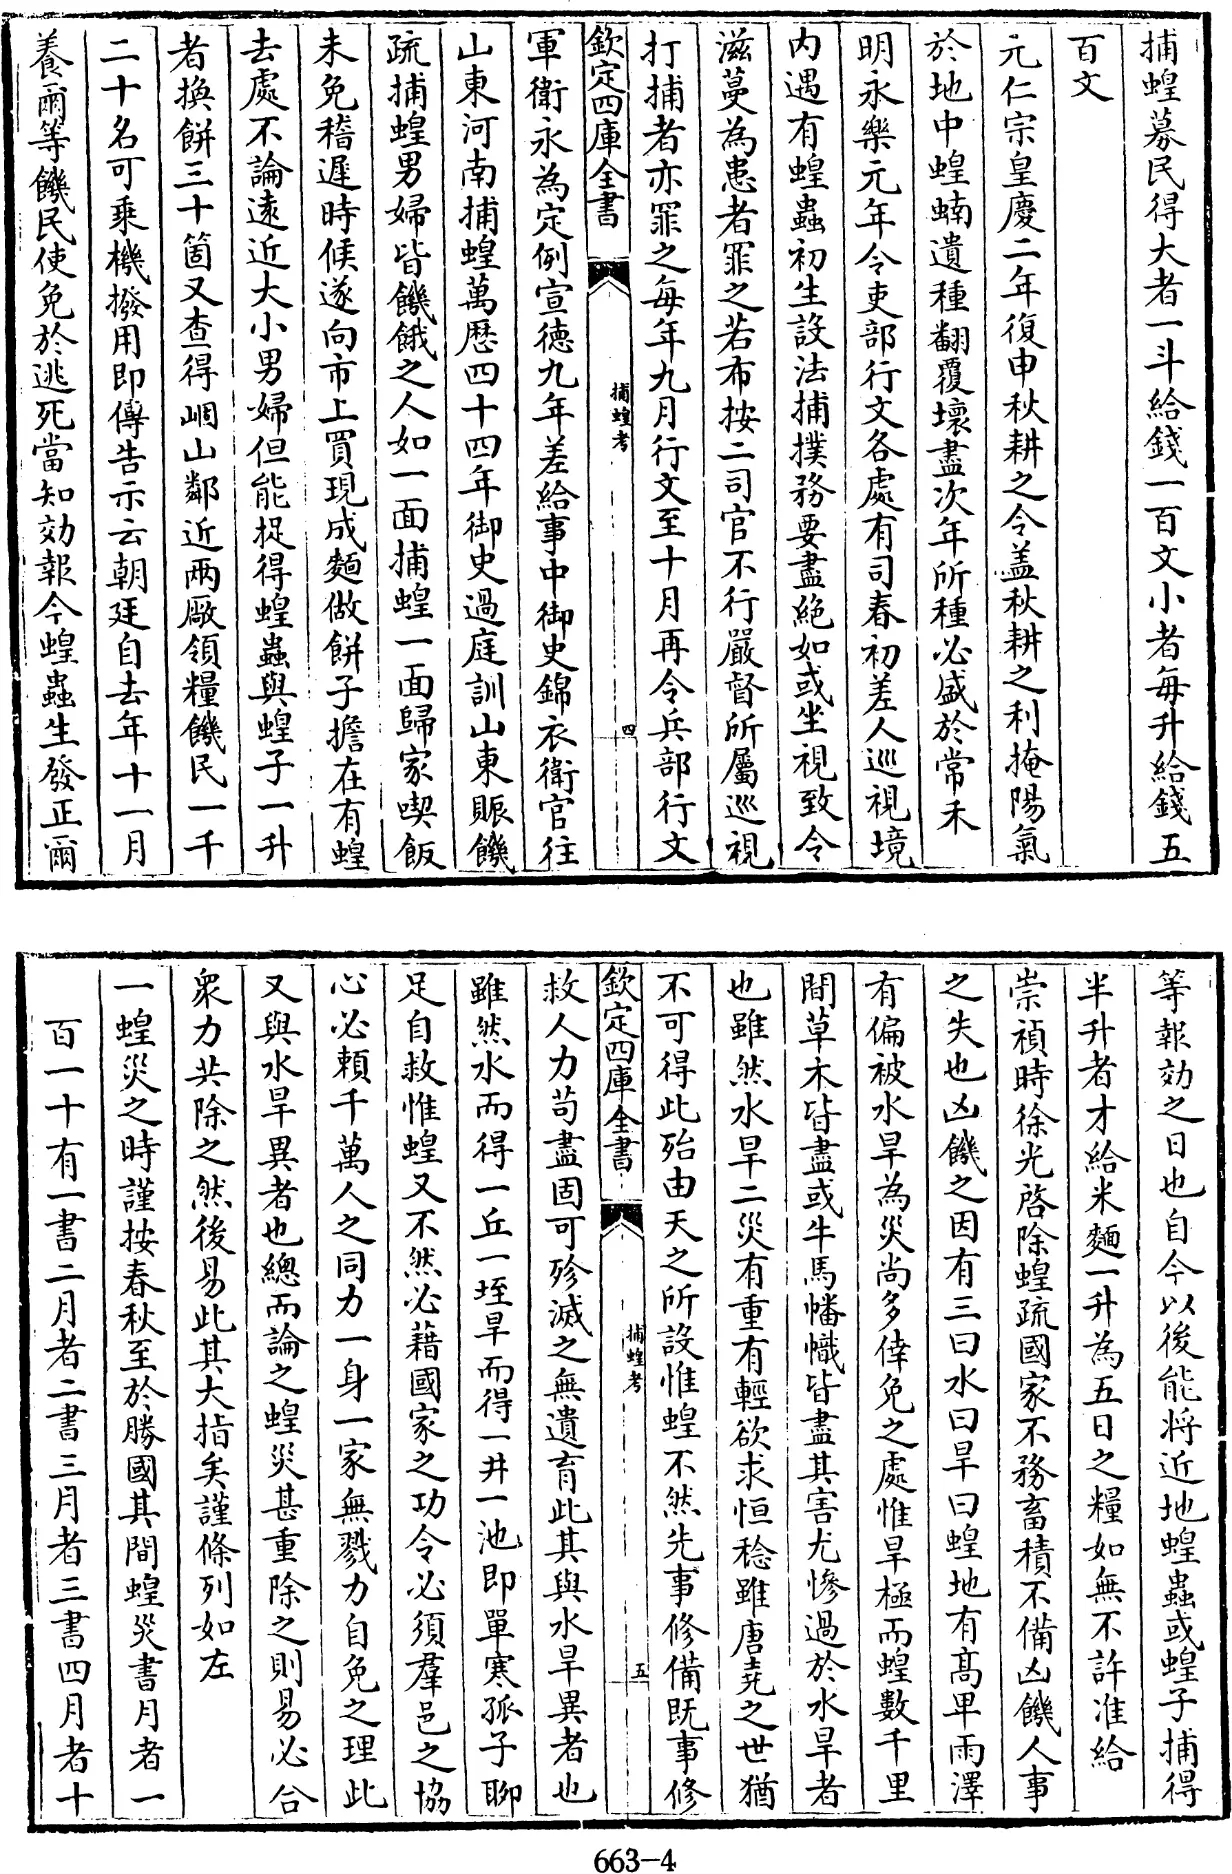 捕蝗募民得大者一斗給錢一百文小者每升給錢五
百文
元仁宗皇慶二年復申秋耕之令蓋秋耕之利掩陽氣
於地中蝗蝻遺種翻覆壞盡次年所種必盛於常禾
明永樂元年令吏部行文各處有司春初差人巡視境
内遇有蝗蟲初生設法捕撲務要盡絶如或坐視致令
滋蔓為患者罪之若布按二司官不行嚴督所屬巡視
打捕者亦罪之每年九月行文至十月再令兵部行文
欽定四庫全書
捕蝗考
四
軍衛永為定例宣德九年差給事中御史錦衣衛官往
山東河南捕蝗萬歴四十四年御史過庭訓山東賑饑
疏捕蝗男婦皆饑餓之人如一面捕蝗一面歸家喫飯
未免稽遲時候遂向市上買現成麵做餅子擔在有蝗
去處不論遠近大小男婦但能捉得蝗蟲與蝗子一升
者換餅三十箇又查得峒山鄰近兩厰領糧饑民一千
二十名可乘機撥用即傳告示云朝廷自去年十一月
養爾等饑民使免於逃死當知効報今蝗蟲生發正爾
等報効之日也自今以後能將近地蝗蟲或蝗子捕得
半升者才給米麵一升為五日之糧如無不許准給
崇禎時徐光啓除蝗疏國家不務畜積不備凶饑人事
之失也凶饑之因有三曰水曰旱曰蝗地有高卑雨澤
有偏被水旱為災尚多倖免之處惟旱極而蝗數千里
間草木皆盡或牛馬幡幟皆盡其害尤慘過於水旱者
也雖然水旱二災有重有輕欲求恒稔雖唐堯之世猶
不可得此殆由天之所設惟蝗不然先事修備既事修
欽定四庫全書
捕蝗考
五
救人力苟盡固可殄滅之無遺育此其與水旱異者也
雖然水而得一丘一垤旱而得一井一池即單寒孤子聊
足自救惟蝗又不然必藉國家之功令必須羣邑之協
心必頼千萬人之同力一身一家無戮力自免之理此
又與水旱異者也總而論之蝗災甚重除之則易必合
衆力共除之然後易此其大指矣謹條列如左
一蝗災之時謹按春秋至於勝國其間蝗災書月者一
百一十有一書二月者二書三月者三書四月者十
663-4